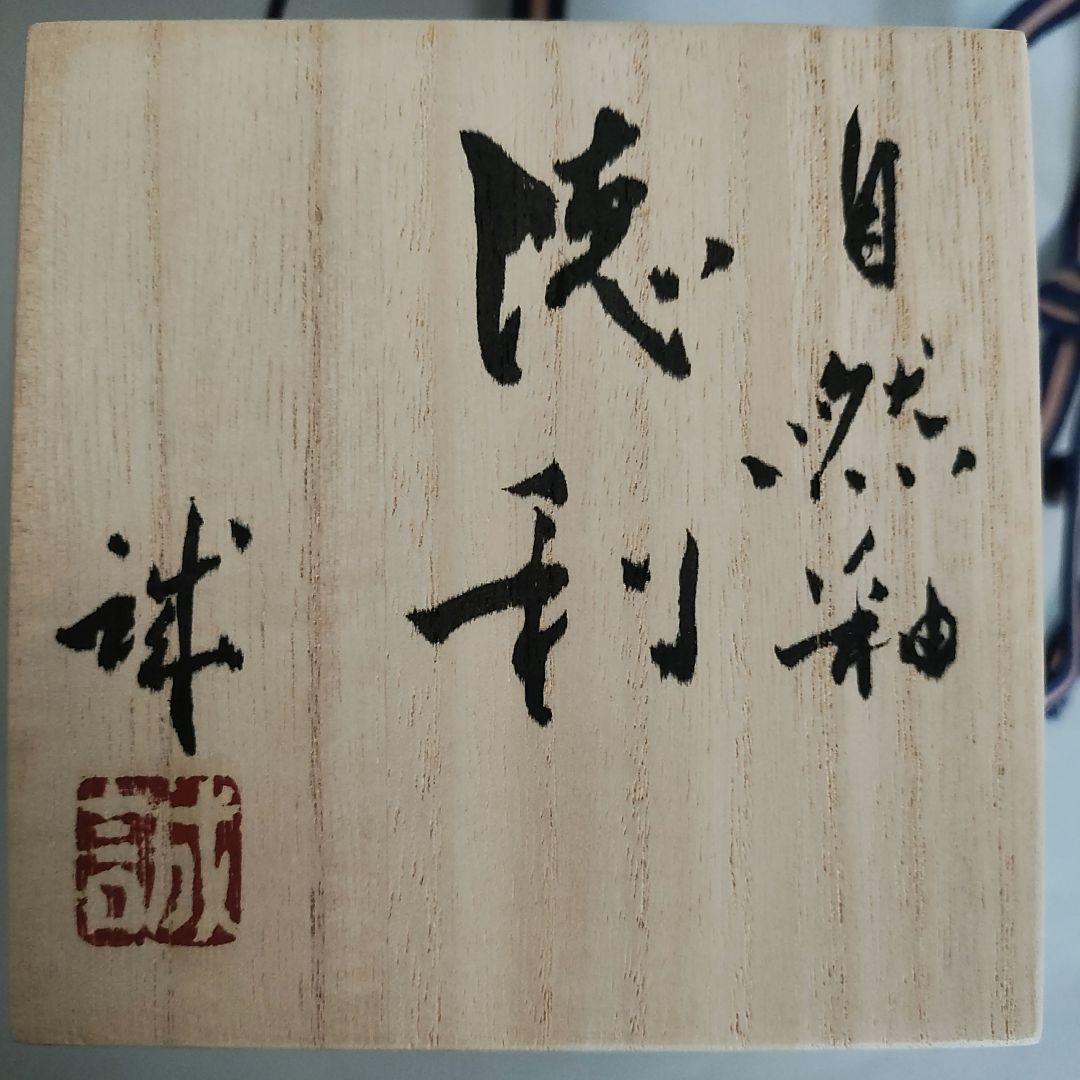 自然釉
徳利
誠
誠